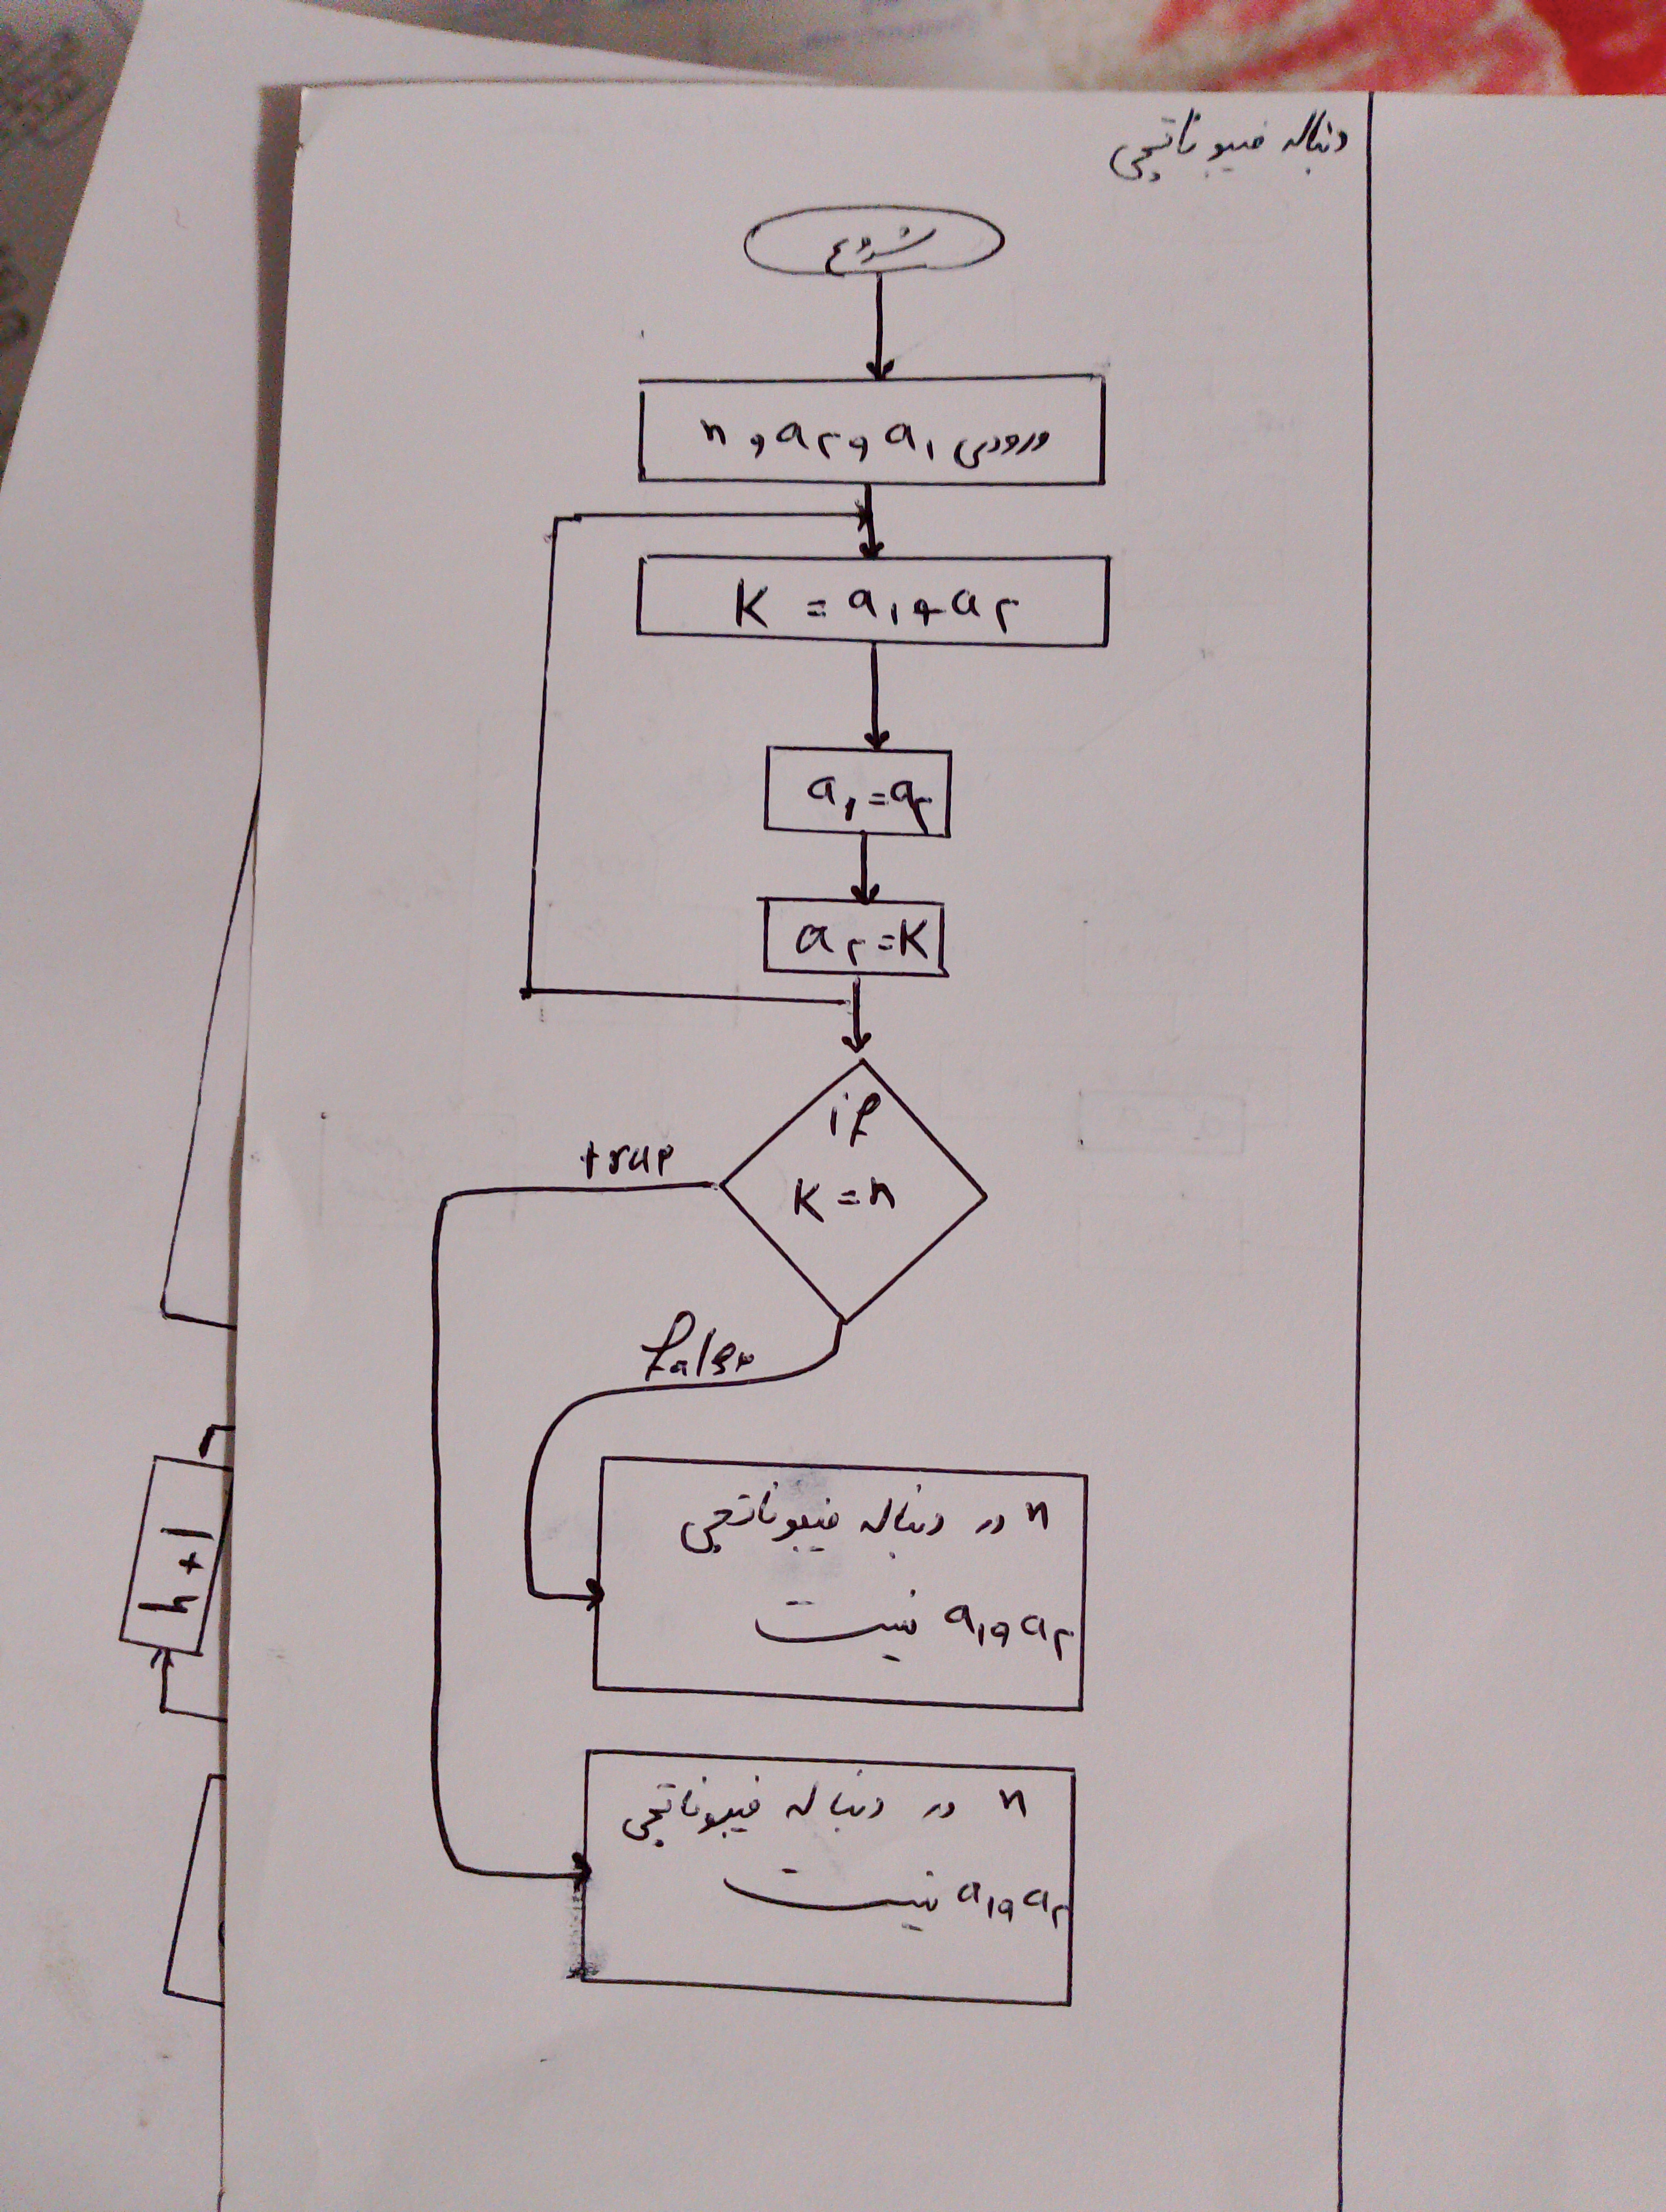 دنباله فیبوناتچی
شروع
ورودی a۱ و a۲ و n
K = a۱ + a۲
a۱ = a۲
a۲ = K
if
K = n
true
false
n در دنباله فیبوناتچی
a۱ و a۲ نیست
n در دنباله فیبوناتچی
a۱ و a۲ نیست
h+1